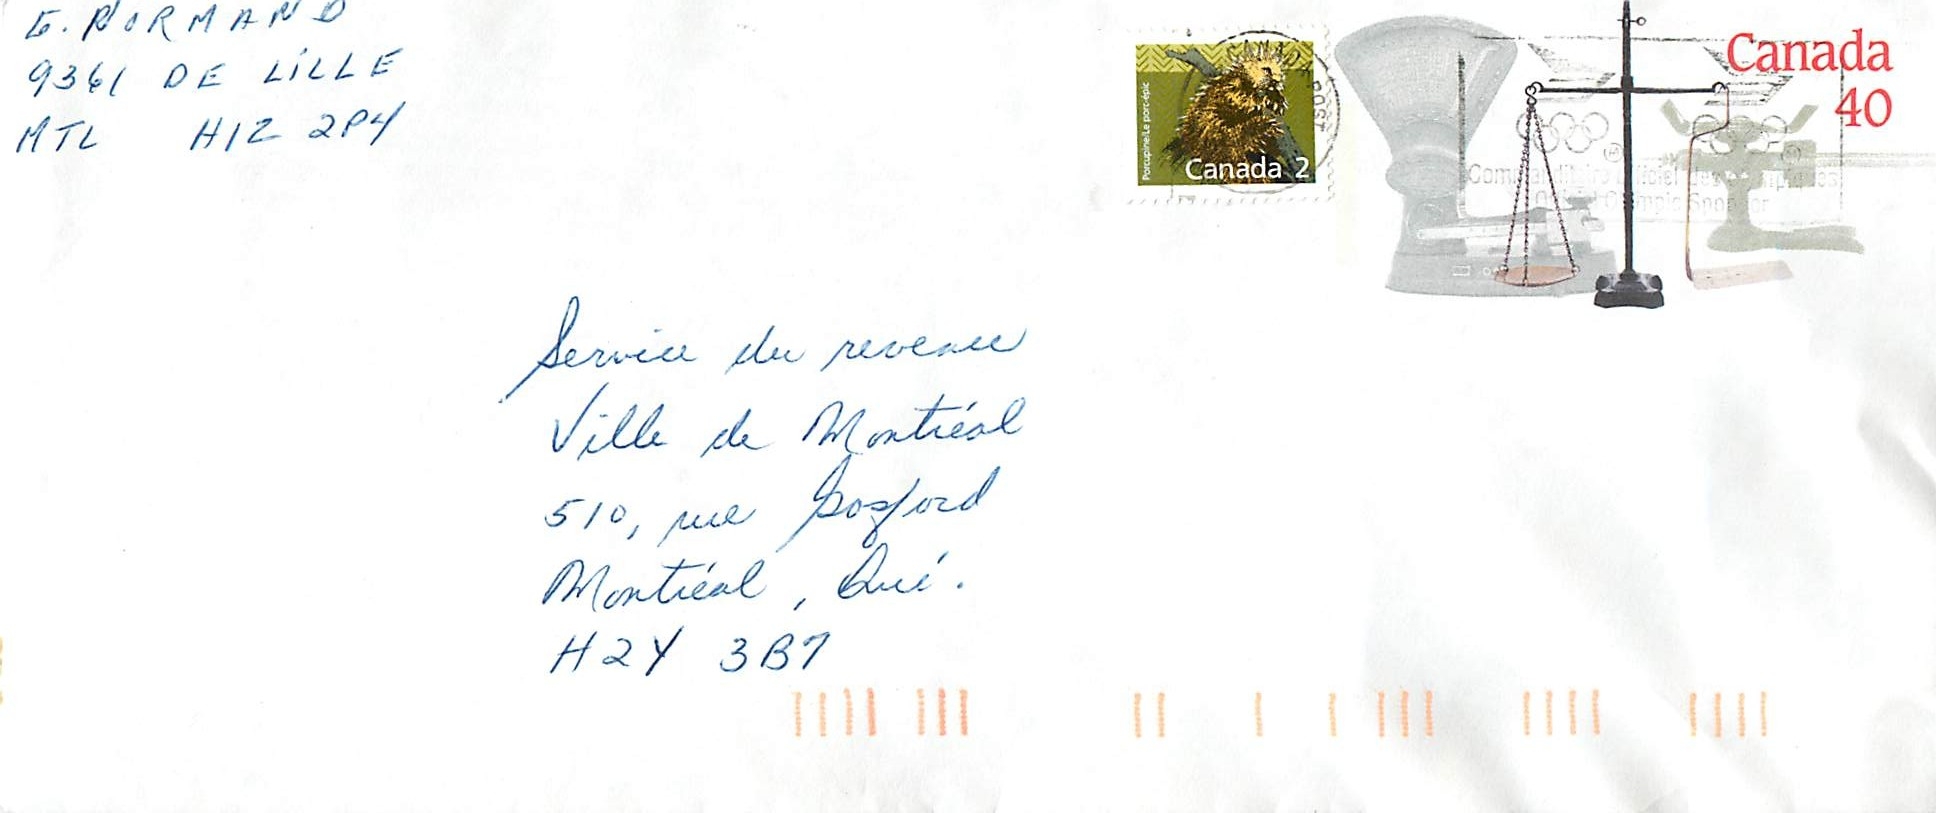 G. NORMAND
9361 DE LILLE
MTL H1Z 2P4
Porcupine/Le porc-épic
Canada 2
CANADA POST
Canada
40
Commanditaire officiel des Olympiques
Official Olympic Sponsor
Service du revenu
Ville de Montréal
510, rue Gosford
Montréal, Qué.
H2Y 3B7